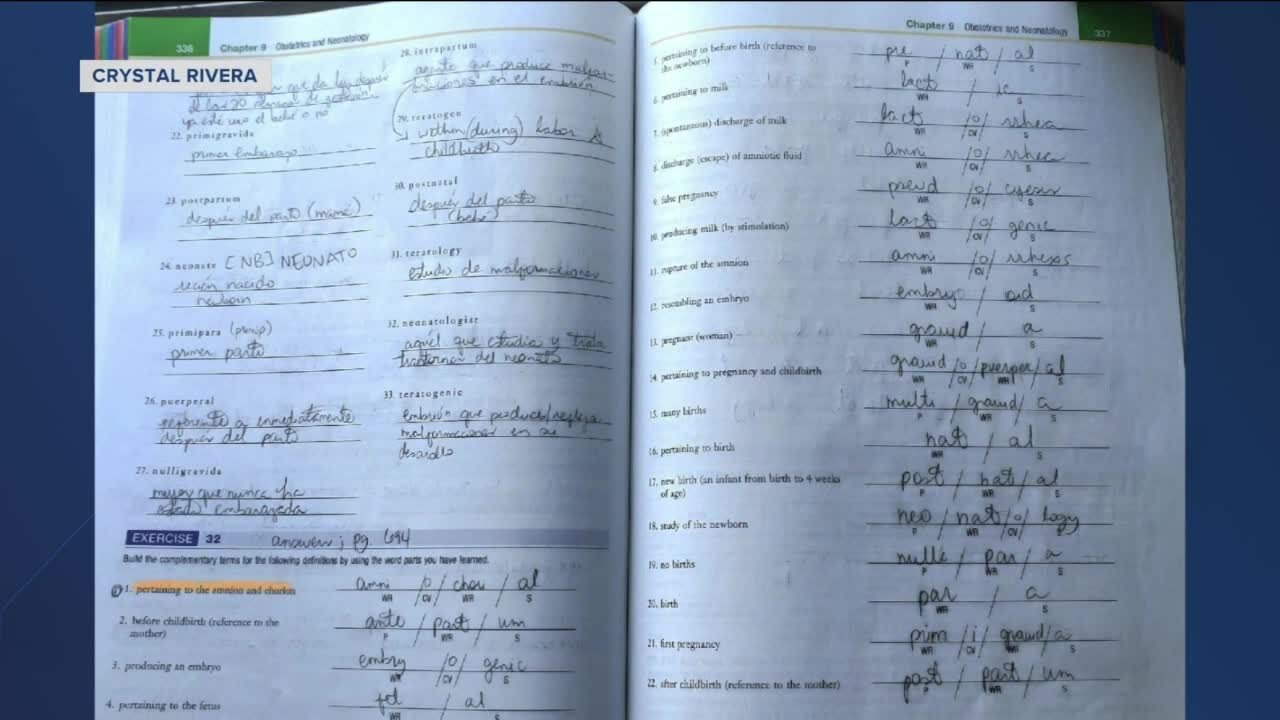 CRYSTAL RIVERA
336
Chapter 9 Obstetrics and Neonatology
de las 20 semanas de gestación
ya esté vivo el bebé o no
22. primigravida
primer embarazo
23. postpartum
después del parto (mamá)
24. neonate [NB] NEONATO
recién nacido
newborn
25. primipara (primip)
primer parto
26. puerperal
referente a inmediatamente
después del parto
27. nulligravida
mujer que nunca ha
estado embarazada
28. intrapartum
agente que produce malfor-
maciones en el embrión
29. teratogen
within (during) labor &
childbirth
30. postnatal
después del parto
(bebé)
31. teratology
estudio de malformaciones
32. neonatologist
aquél que estudia y trata
trastornos del neonato
33. teratogenic
embrión que produce/
malformaciones en su
desarollo
EXERCISE 32 answers; pg. 694
Build the complementary terms for the following definitions by using the word parts you have learned.
1. pertaining to the amnion and chorion
amni / o / chori / al
WR CV WR S
2. before childbirth (reference to the
mother)
ante / part / um
P WR S
3. producing an embryo
embry / o / genic
WR CV S
4. pertaining to the fetus
fet / al
WR S
Chapter 9 Obstetrics and Neonatology
337
5. pertaining to before birth (reference to
the newborn)
pre / nat / al
P WR S
6. pertaining to milk
lact / ic
WR S
7. (spontaneous) discharge of milk
lact / o / rrhea
WR CV S
8. discharge (escape) of amniotic fluid
amni / o / rrhea
WR CV S
9. false pregnancy
pseud / o / cyesis
WR CV S
10. producing milk (by stimulation)
lact / o / genic
WR CV S
11. rupture of the amnion
amni / o / rrhexis
WR CV S
12. resembling an embryo
embry / oid
WR S
13. pregnant (woman)
gravid / a
WR S
14. pertaining to pregnancy and childbirth
gravid / o / puerper / al
WR CV WR S
15. many births
multi / gravid / a
P WR S
16. pertaining to birth
nat / al
WR S
17. new birth (an infant from birth to 4 weeks
of age)
post / nat / al
P WR S
18. study of the newborn
neo / nat / o / logy
P WR CV S
19. no births
nulli / par / a
P WR S
20. birth
par / a
WR S
21. first pregnancy
prim / i / gravid / a
WR CV WR S
22. after childbirth (reference to the mother)
post / part / um
P WR S